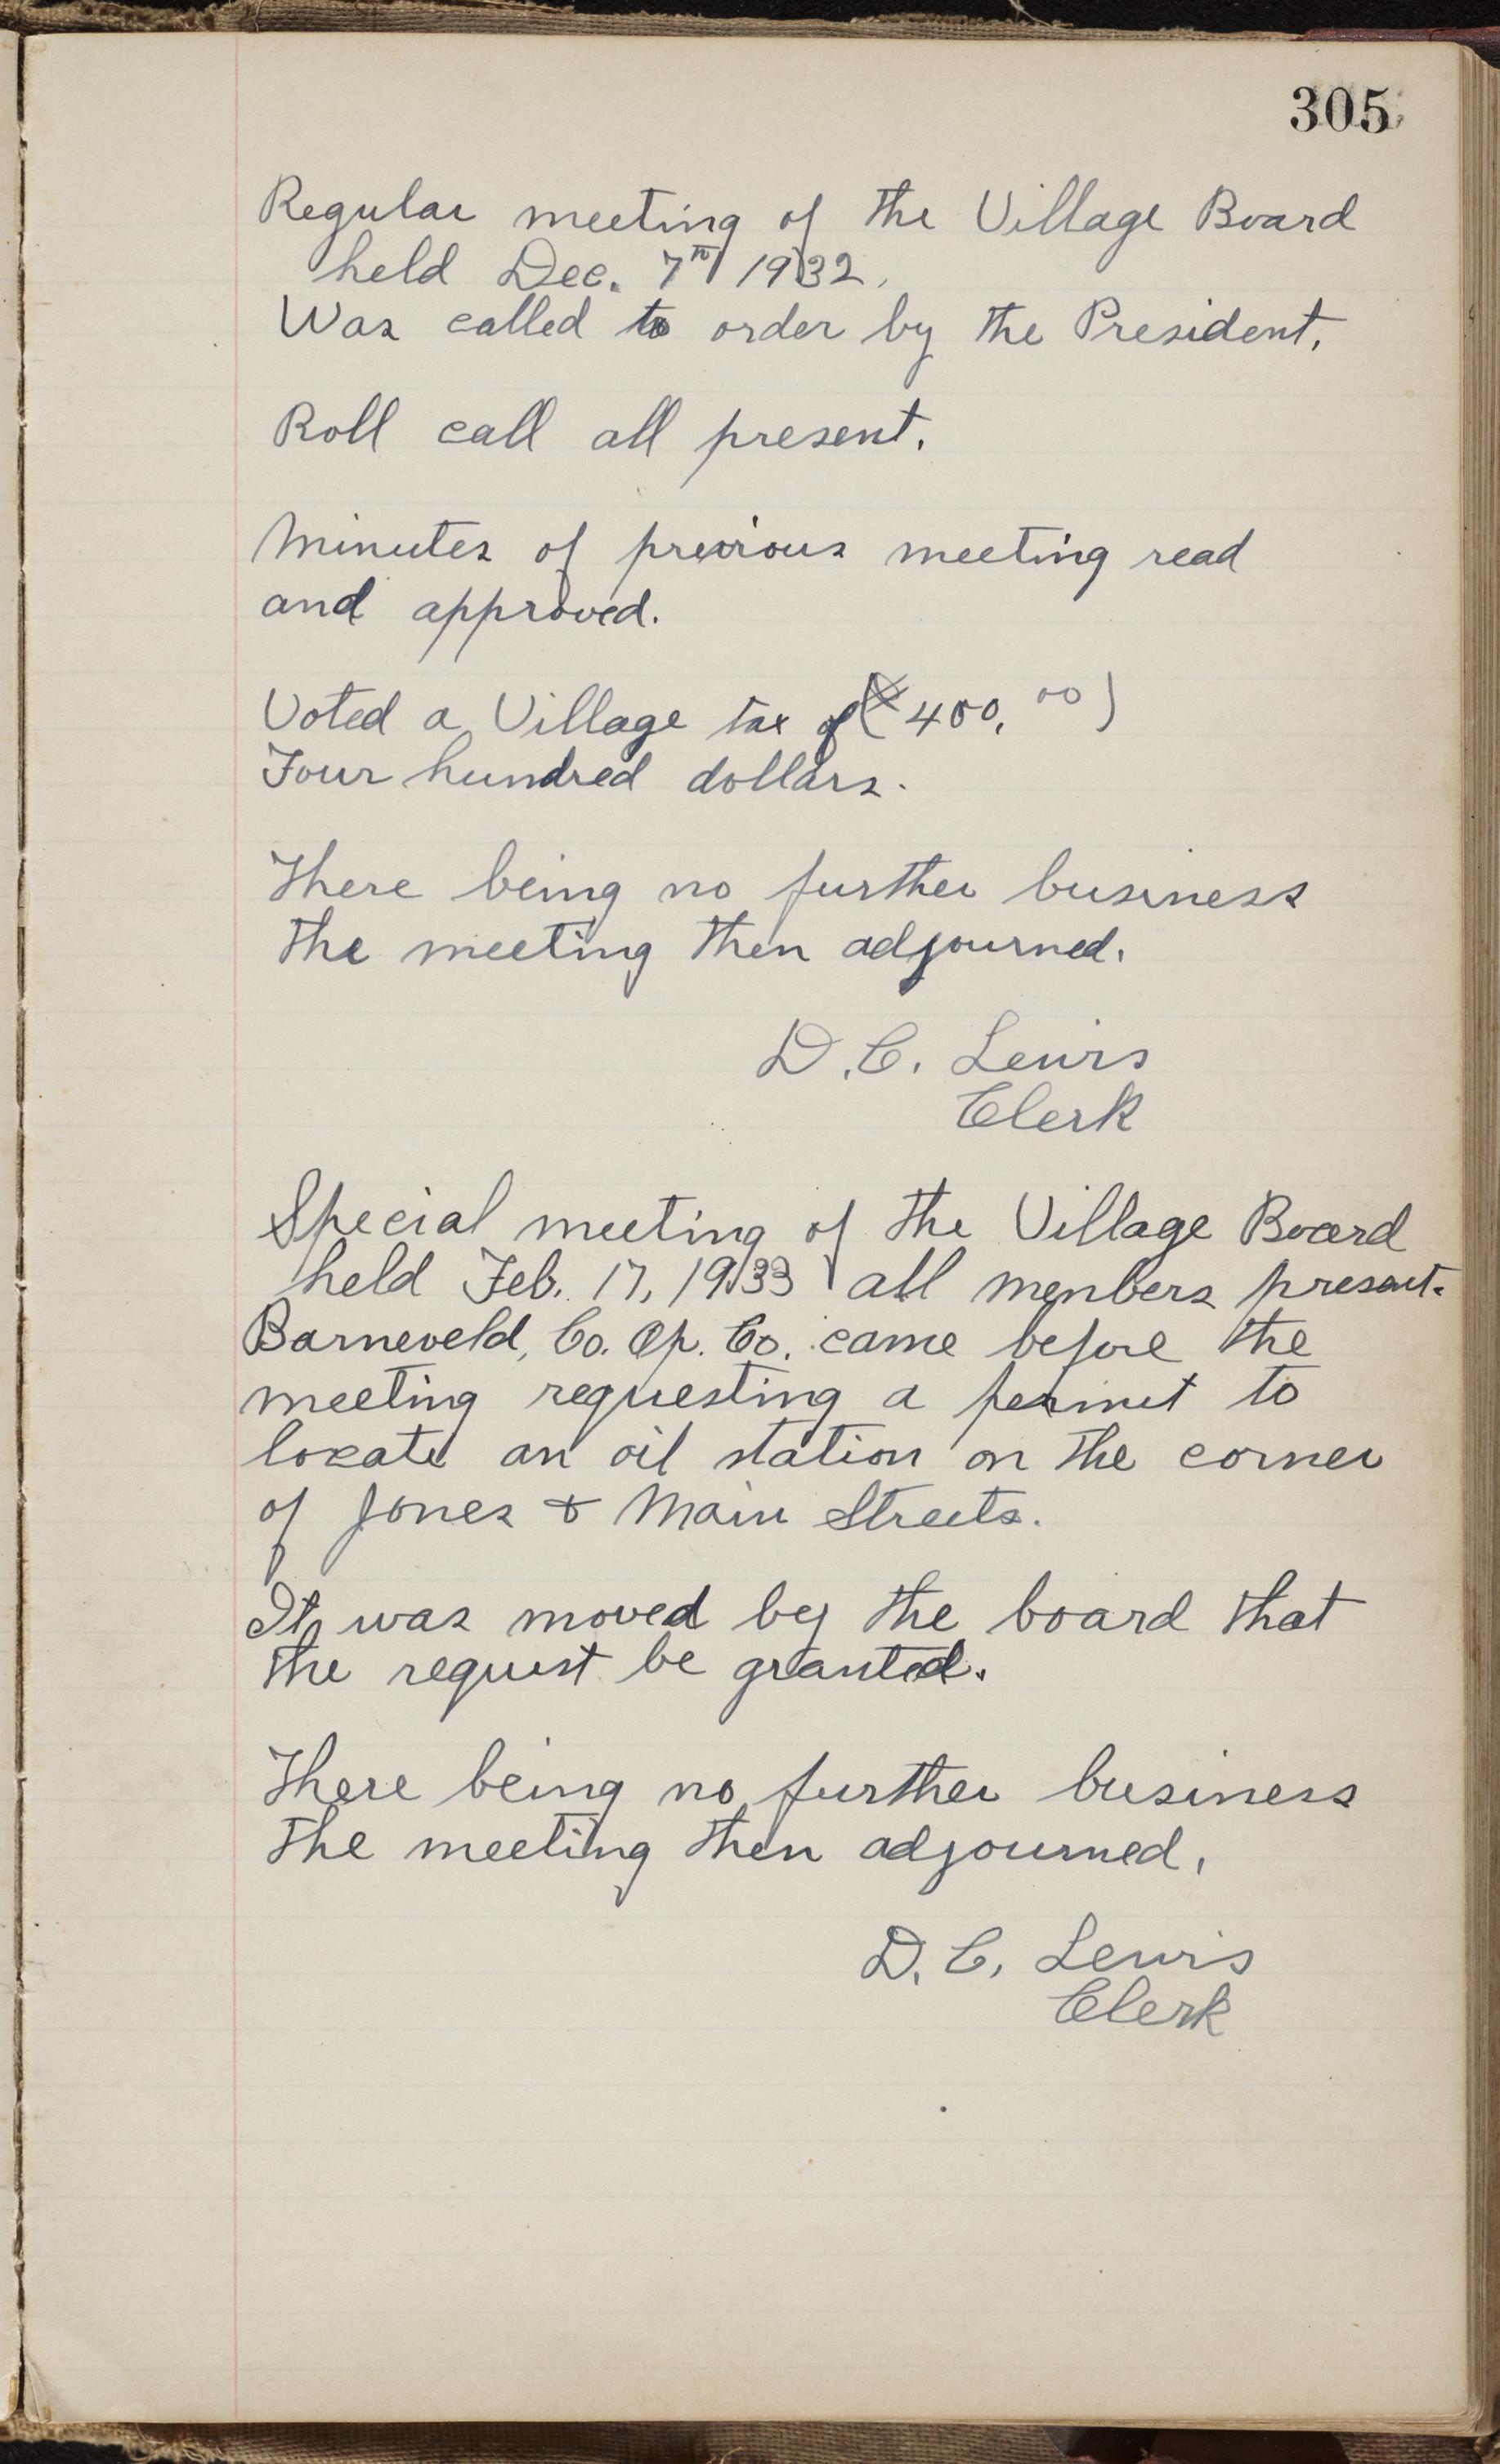 305
Regular meeting of the Village Board
held Dec. 7th 1932.
Was called to order by the President.
Roll call all present.
Minutes of previous meeting read
and approved.
Voted a Village tax of ($400.00)
Four hundred dollars.
There being no further business
the meeting then adjourned.
D.C. Lewis
Clerk
Special meeting of the Village Board
held Feb. 17, 1933 all menbers present.
Barneveld, Co. Op. Co. came before the
meeting requesting a permit to
locate an oil station on the corner
of Jones & Main Streets.
It was moved by the board that
the request be granted.
There being no further business
the meeting then adjourned.
D.C. Lewis
Clerk